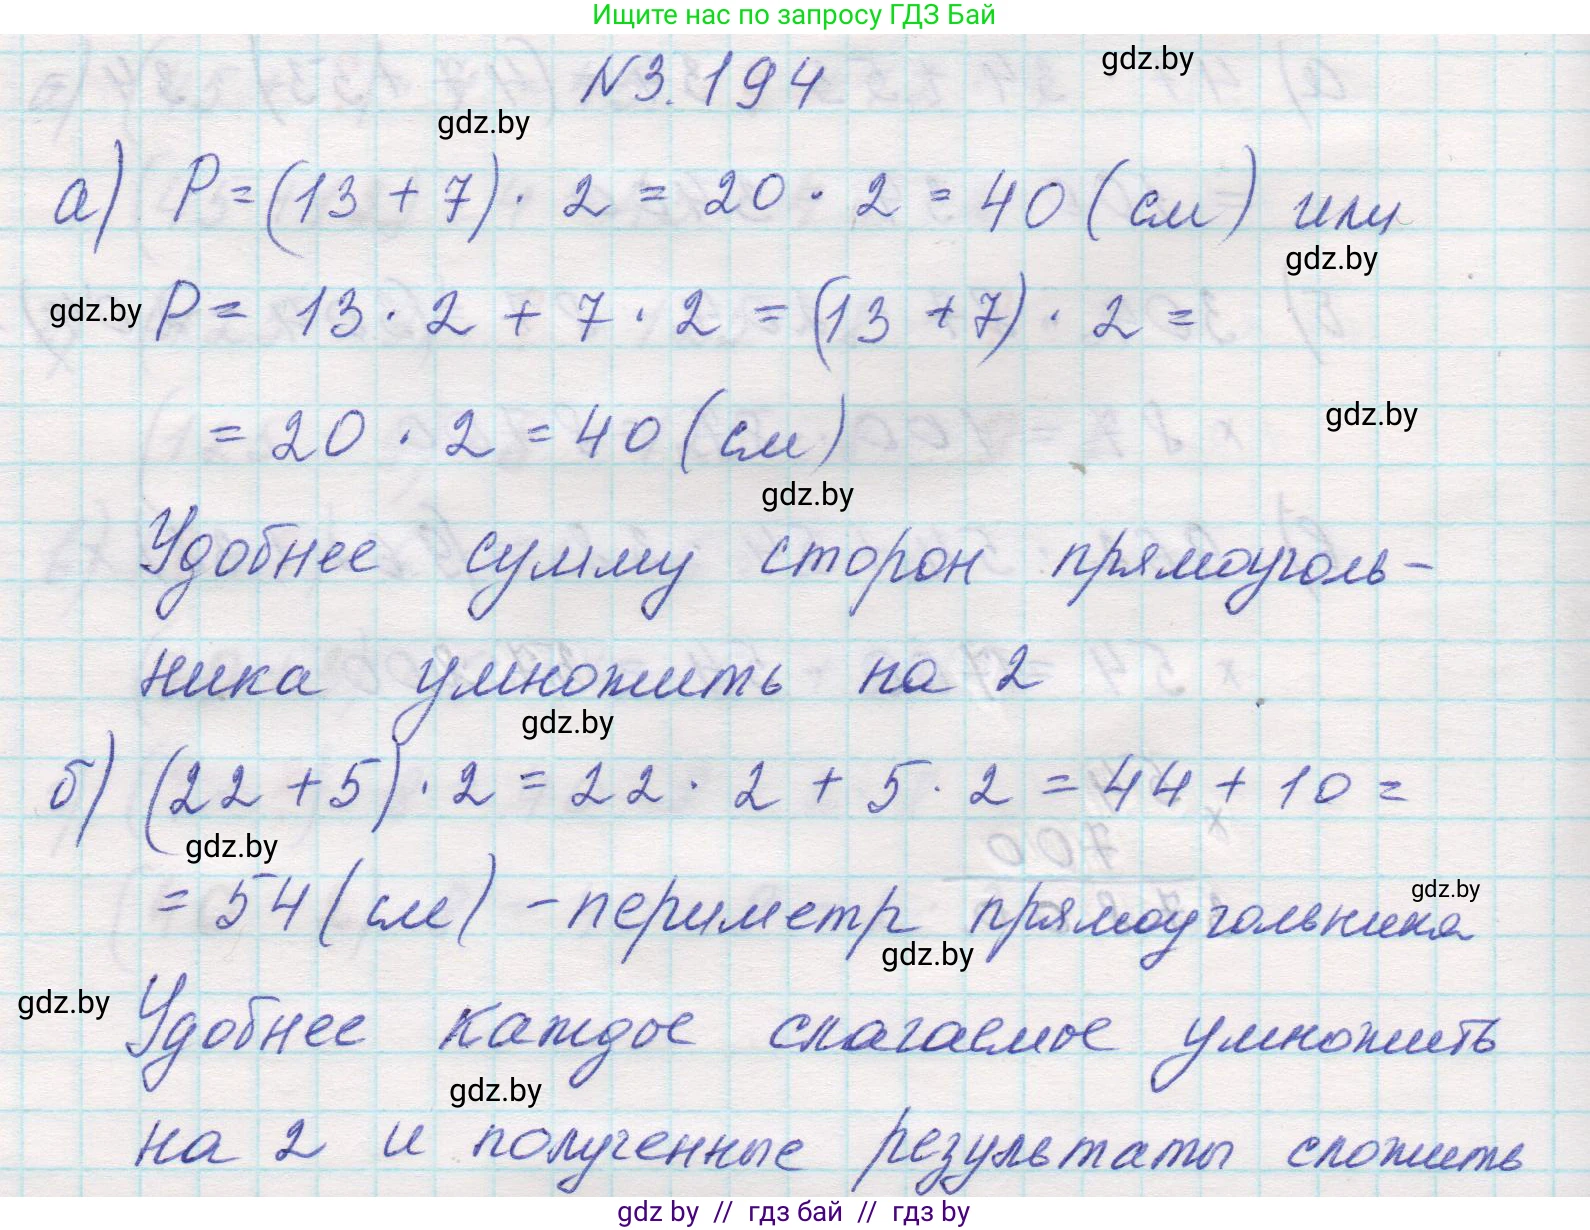 Ищите нас по запросу ГДЗ Бай
N3.194
gdz.by
gdz.by
а) P = (13 + 7) · 2 = 20 · 2 = 40 (см) или
gdz.by
gdz.by
P = 13 · 2 + 7 · 2 = (13 + 7) · 2 =
= 20 · 2 = 40 (см)
gdz.by
gdz.by
Удобнее сумму сторон прямоуголь-
ника умножить на 2
gdz.by
б) (22 + 5) · 2 = 22 · 2 + 5 · 2 = 44 + 10 =
gdz.by
= 54 (см) - периметр прямоугольника
gdz.by
gdz.by
gdz.by
Удобнее каждое слагаемое умножить
gdz.by
на 2 и полученные результаты сложить
gdz by // гдз бай // гдз by